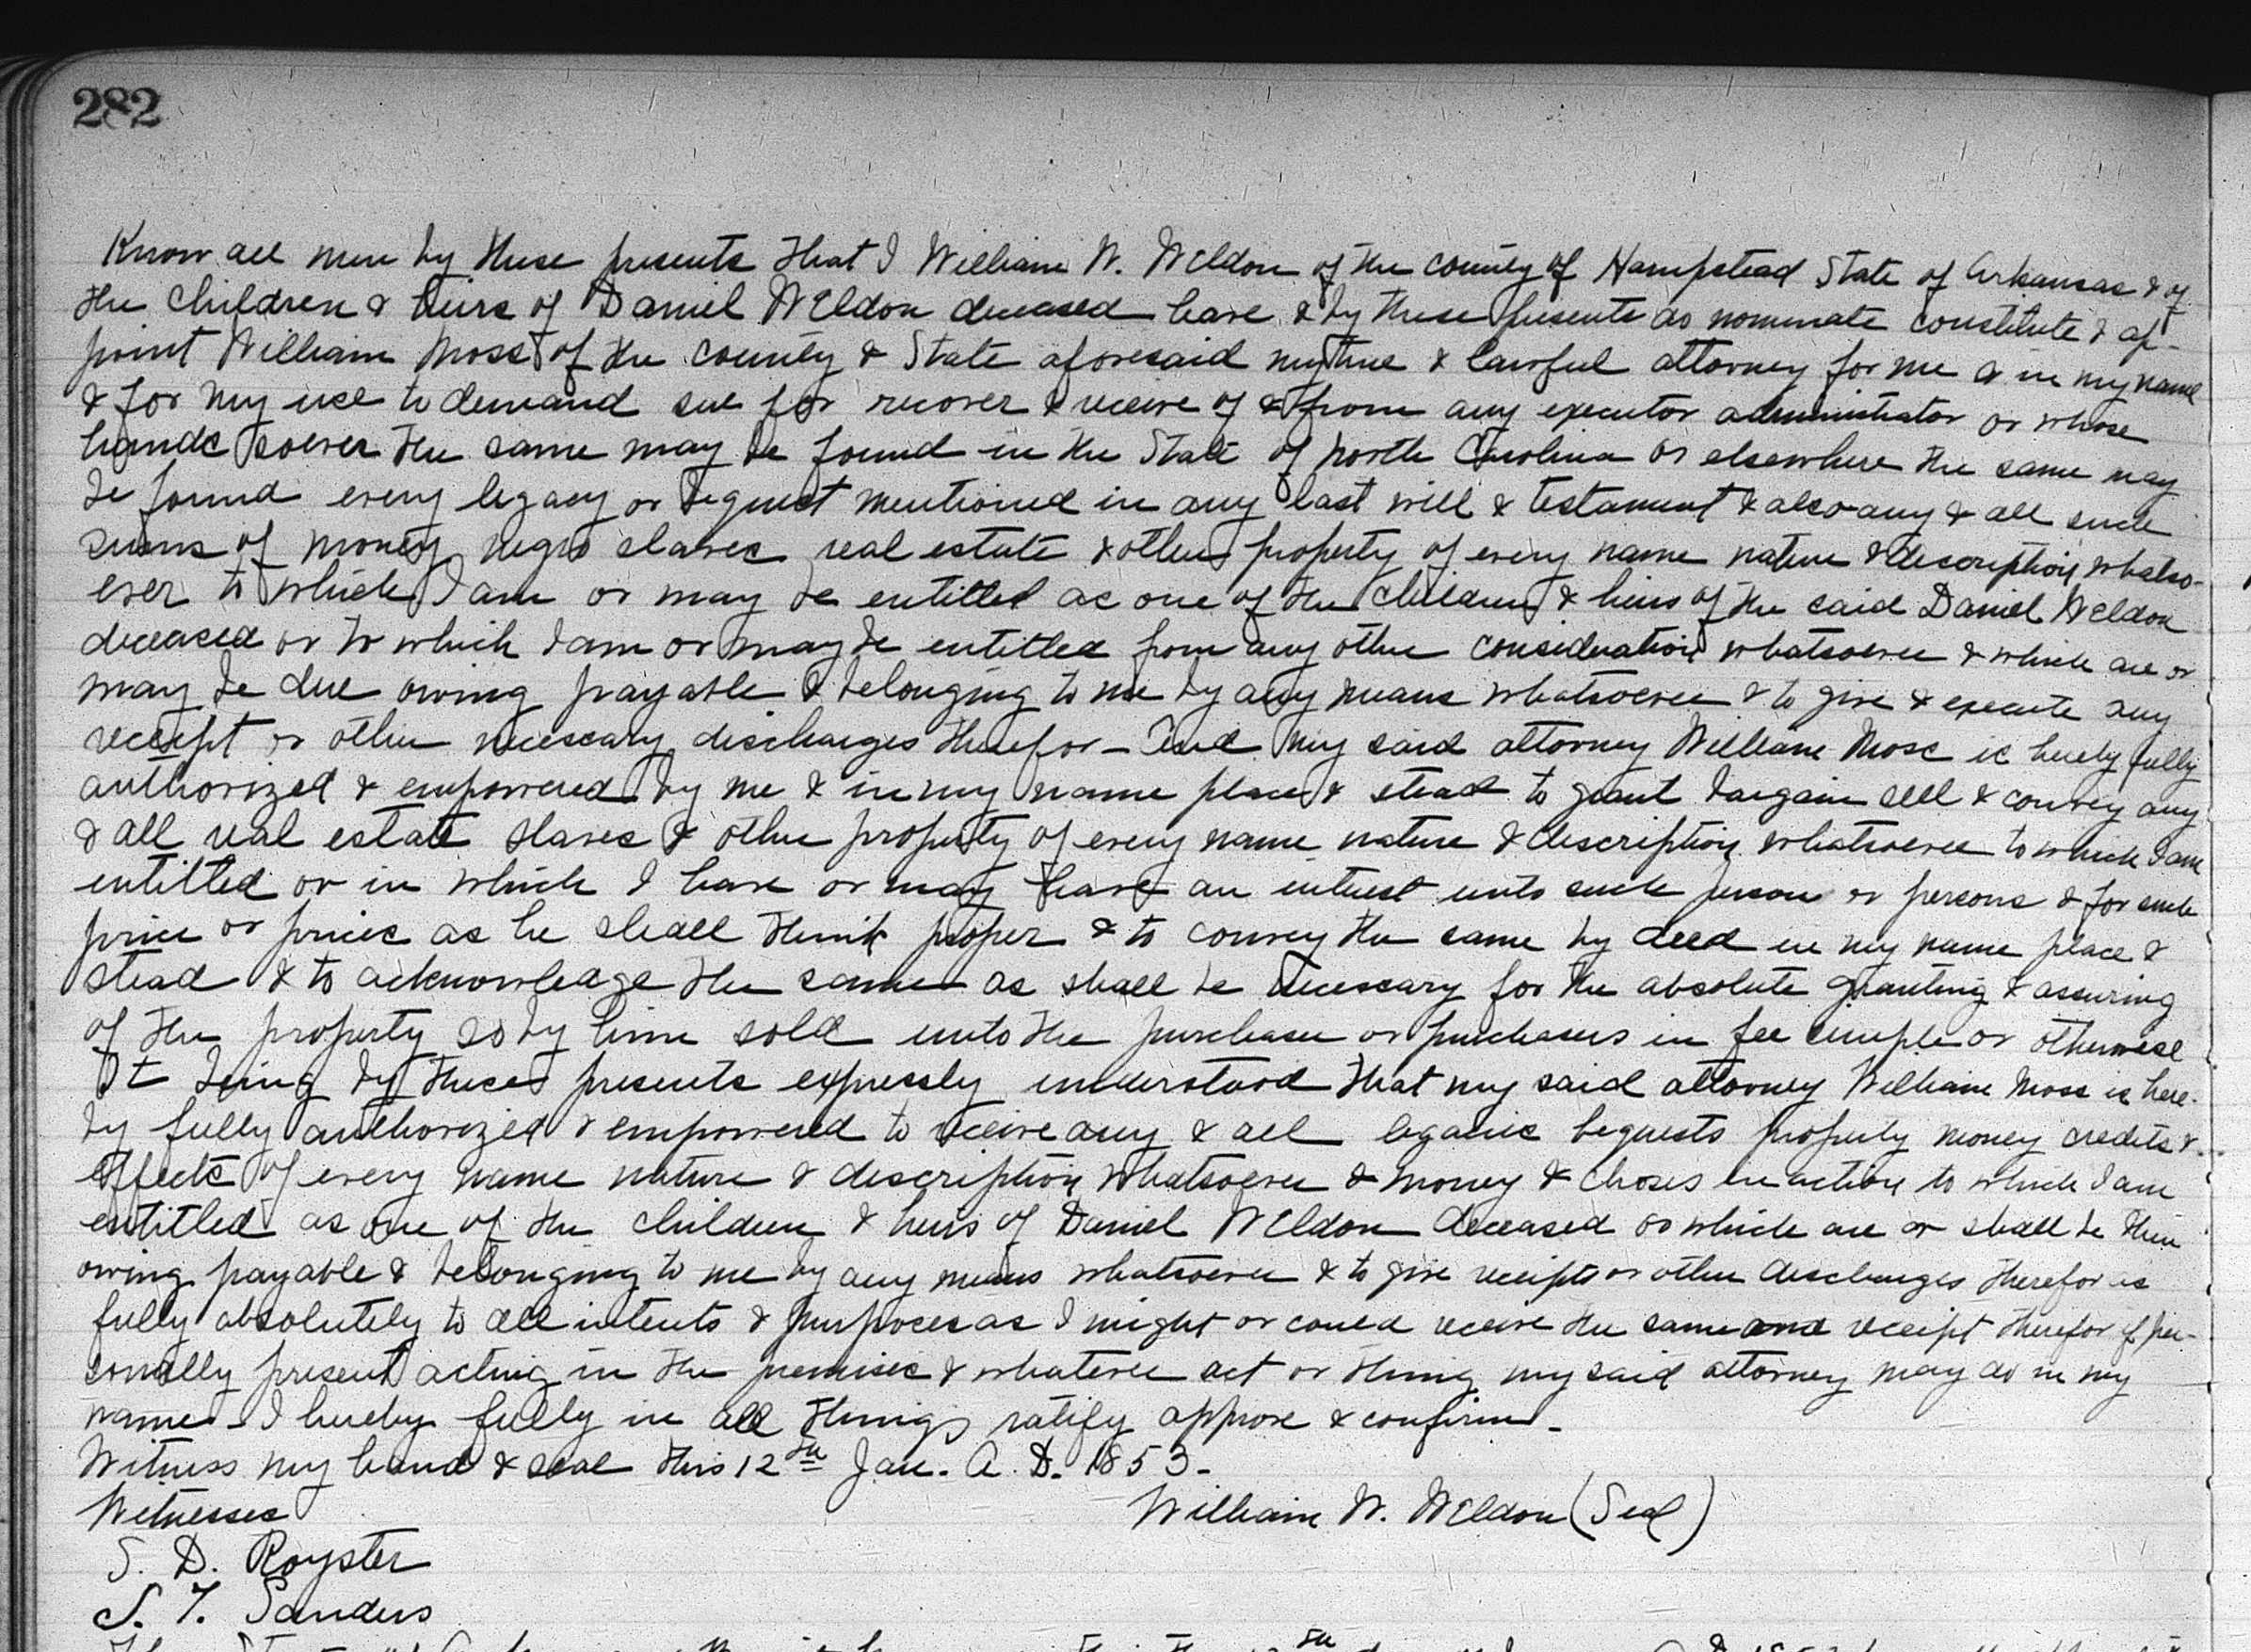 282
Know all men by these presents that I William W. Weldon of the county of Hampstead State of Arkansas & of
the children & heirs of Daniel Weldon deceased have & by these presents do nominate constitute & ap-
point William Moss of the county & State aforesaid my true & lawful attorney for me & in my name
& for my use to demand sue for recover & receive of & from any executor administrator or whose
hands soever the same may be found in the State of North Carolina or elsewhere the same may
be found every legacy or bequest mentioned in any last will & testament & also any & all such
sums of money negro slaves real estate & other property of every name nature & description whatso-
ever to which I am or may be entitled as one of the children & heirs of the said Daniel Weldon
deceased or to which I am or may be entitled from any other consideration whatsoever & which are or
may be due owing payable & belonging to me by any means whatsoever & to give & execute any
receipt or other necessary discharges therefor - And my said attorney William Moss is hereby fully
authorized & empowered by me & in my name place & stead to grant bargain sell & convey any
& all real estate slaves & other property of every name nature & description whatsoever to which I am
entitled or in which I have or may have an interest unto such person or persons & for such
price or prices as he shall think proper & to convey the same by deed in my name place &
stead & to acknowledge the same as shall be necessary for the absolute granting & assuring
of the property so by him sold unto the purchaser or purchasers in fee simple or otherwise
It being by these presents expressly understood that my said attorney William Moss is here-
by fully authorized & empowered to receive any & all legacies bequests property money credits &
effects of every name nature & description whatsoever & money & choses in action to which I am
entitled as one of the children & heirs of Daniel Weldon deceased or which are or shall be then
owing payable & belonging to me by any means whatsoever & to give receipts or other discharges therefor as
fully absolutely to all intents & purposes as I might or could receive the same and receipt therefor if per-
sonally present acting in the premises & whatever act or thing my said attorney may do in my
name I hereby fully in all things ratify approve & confirm -
Witness my hand & seal this 12th Jan. A. D. 1853 -
Witnesses William W. Weldon (Seal)
S. D. Royster
S. T. Sanders